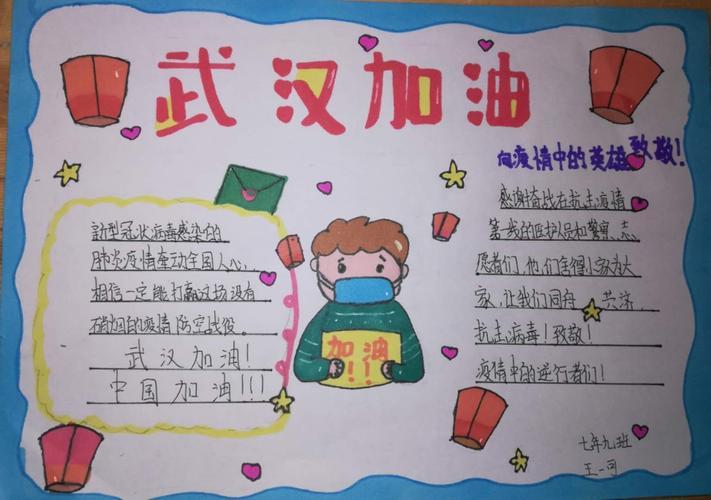 武汉加油
向疫情中的英雄致敬！
新型冠状病毒感染的
肺炎疫情牵动全国人心，
相信一定能打赢这场没有
硝烟的疫情防空战役。
武汉加油！
中国加油！！！
加油
！！
感谢奋战在抗击疫情
第一线的医护人员和警察、志
愿者们，他们舍得小家为大
家，让我们同舟 共济，
抗击病毒！致敬！
疫情中的逆行者们！
七年九班
王一可